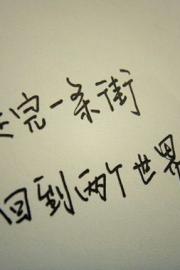 走完一条街
回到两个世界